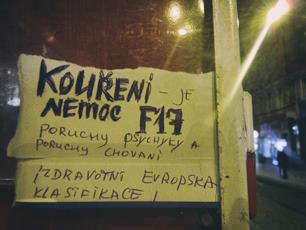 KOUŘENÍ - JE
NEMOC F17
PORUCHY PSYCHYKY A
PORUCHY CHOVÁNÍ
IZDRAVOTNÍ EVROPSKÁ
KLASIFIKACE !